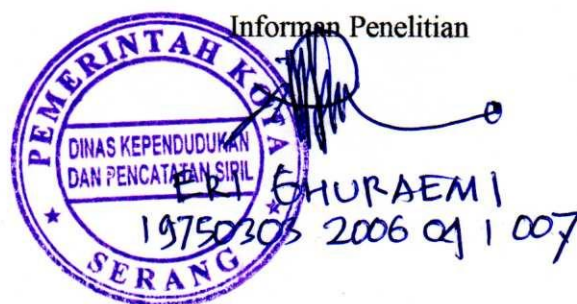 Informan Penelitian
PEMERINTAH KOTA
DINAS KEPENDUDUKAN
DAN PENCATATAN SIPIL
SERANG
ERI GHURAEMI
19750303 2006 04 1 007